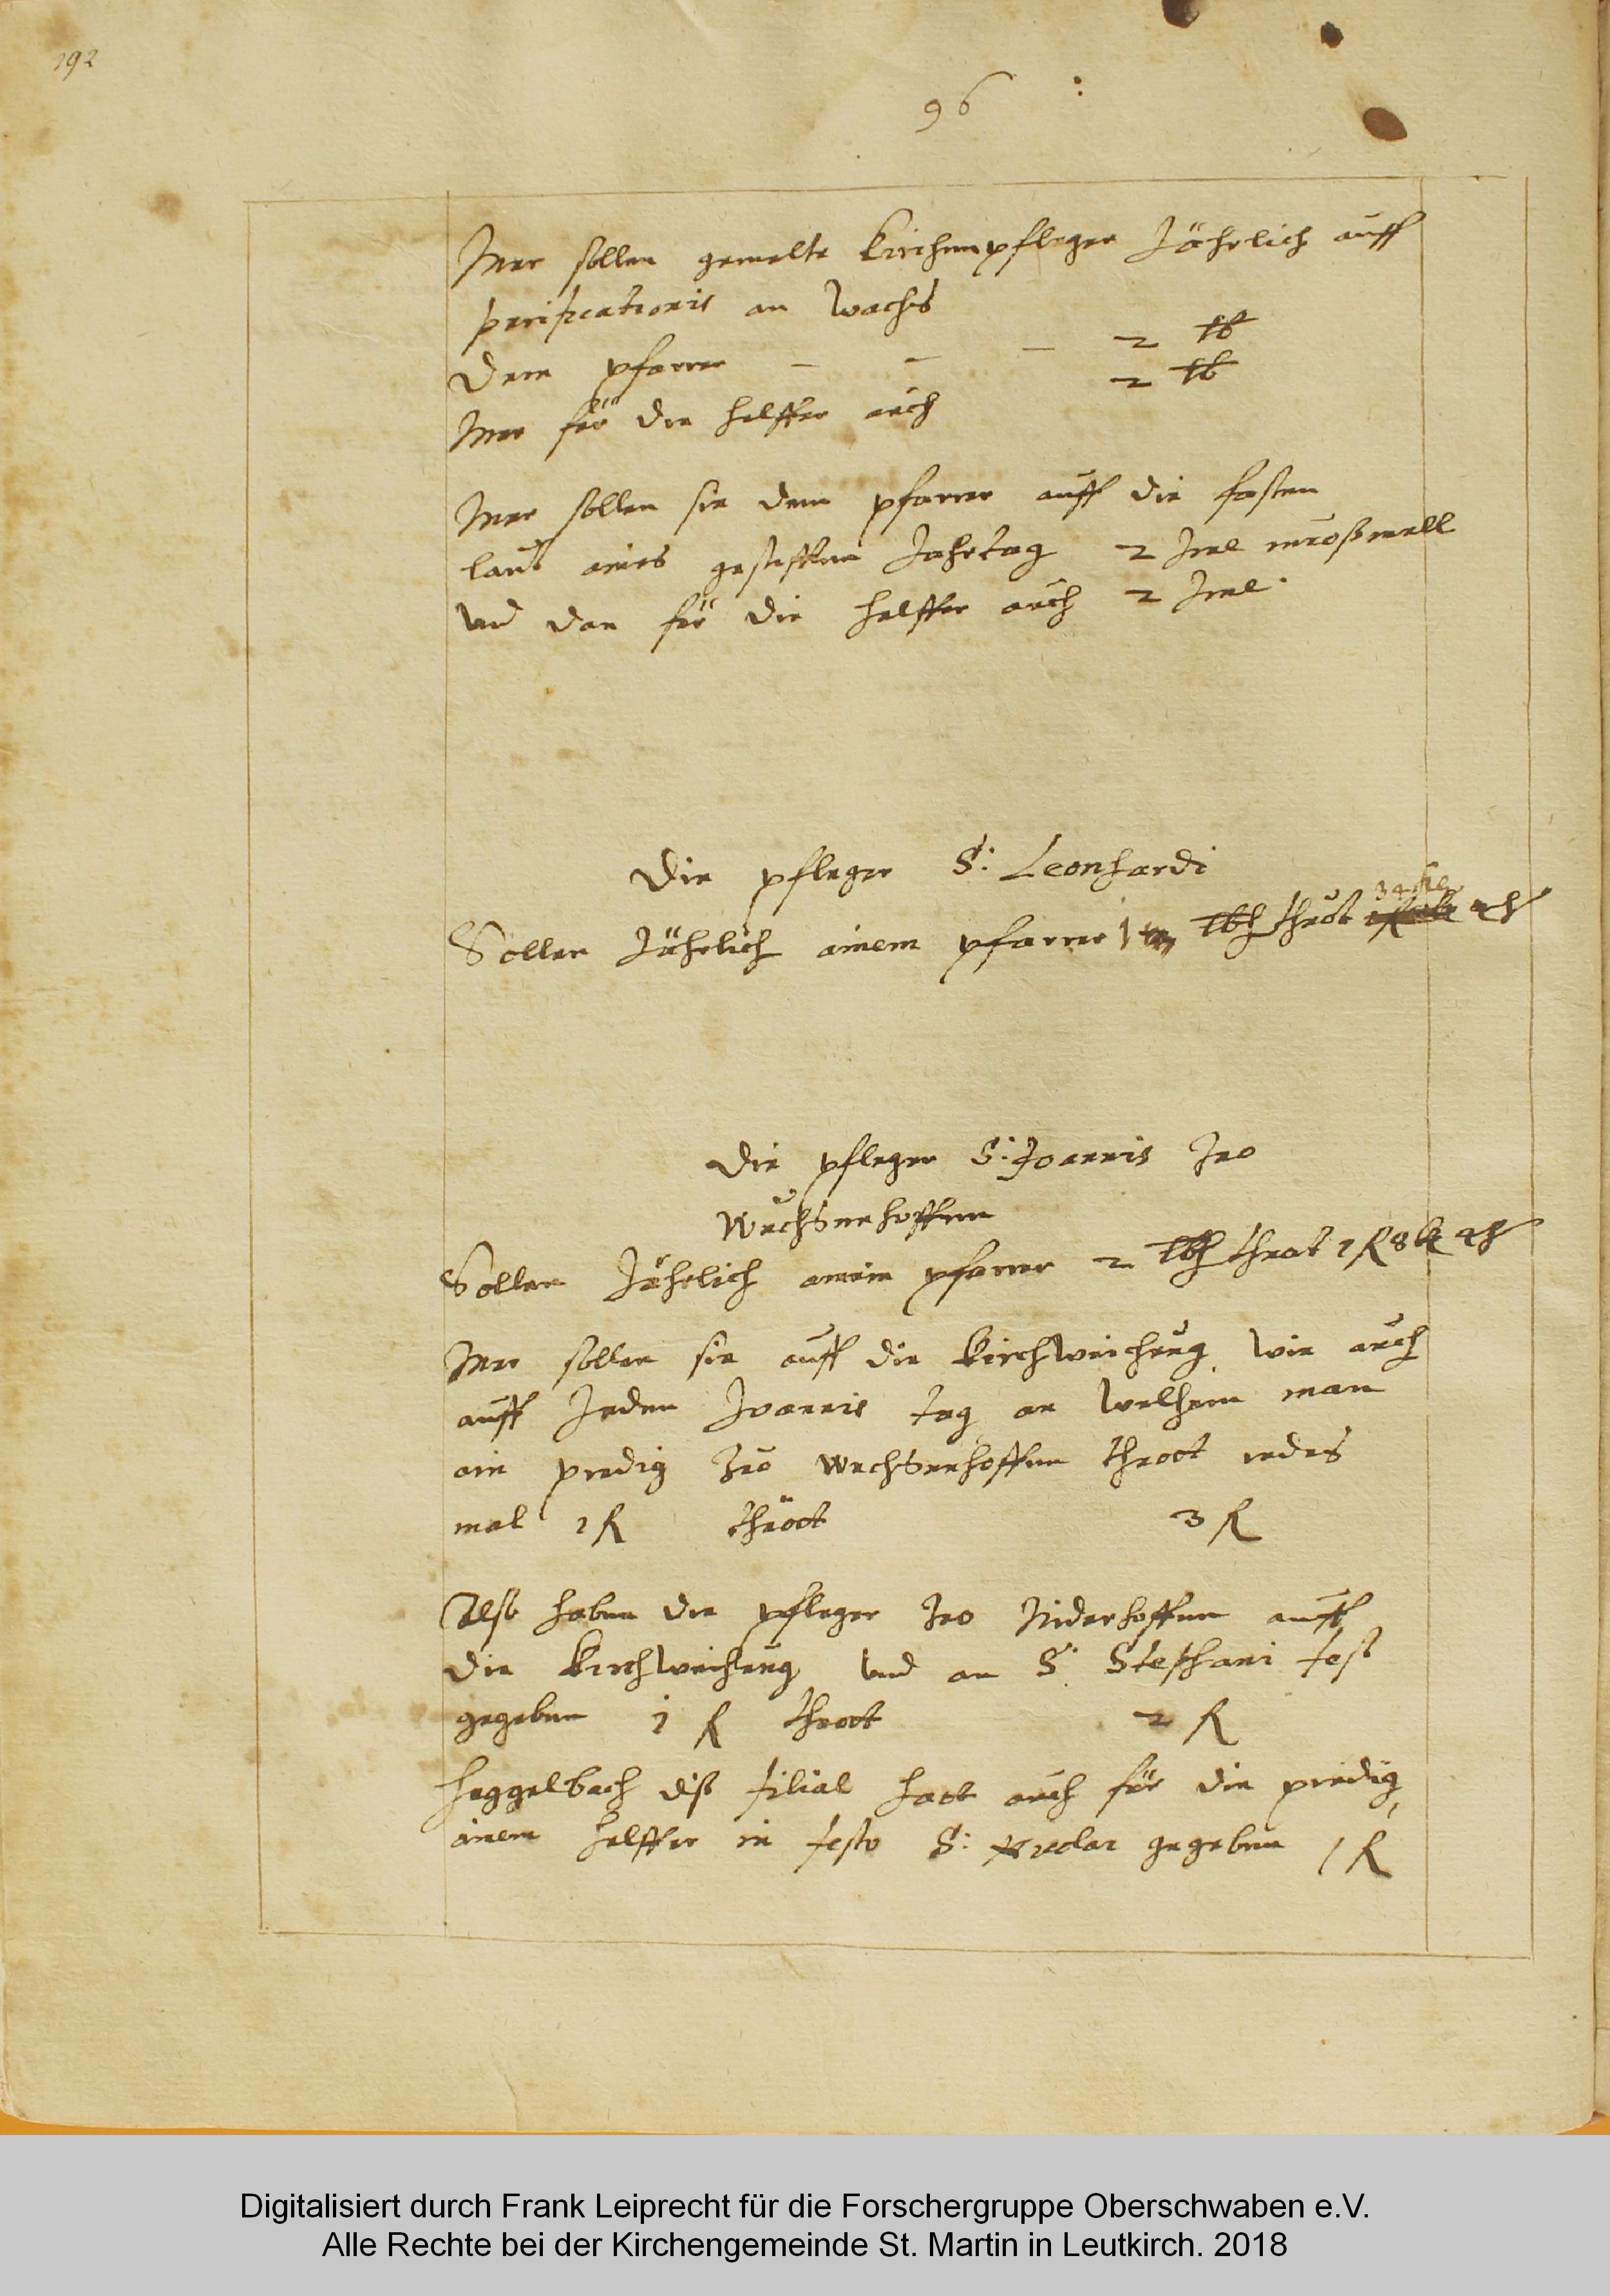 192
96 :
Mer sollen gemelte Kirchenpfleger Jährlich auff
purificationis an wachs
Dem pfarrer – – – 2 lb
Mer für die helffer auch 2 lb
Mer sollen sie dem pfarrer auff die fasten
laut eines gestifften Jahrtag 2 Imi muoßmell
und dan für die helffer auch 2 Imi
Die pfleger S: Leonhardi
Sollen Jährlich einem pfarrer 1 lb thuot 34
Die pfleger S: Joannis Zuo
Wuchsenhoffen
Sollen Jährlich ainem pfarrer 2 lb thuot 1 fl 8
Mer sollen sie auff die Kirchweichung wie auch
auff Jeden Joannis tag an welhem man
ain predig Zuo Wuchsenhoffen thuot iedes
mal 1 fl thuot 3 fl
Also haben die pfleger Zuo Niderhoffen auff
die Kirchweichung und an S. Stephani fest
gegeben 1 fl thuot 2 fl
Heggelbach diß filial hatt auch für die predig
ainem helffer in festo S: gegeben 1 fl
Digitalisiert durch Frank Leiprecht für die Forschergruppe Oberschwaben e.V.
Alle Rechte bei der Kirchengemeinde St. Martin in Leutkirch. 2018